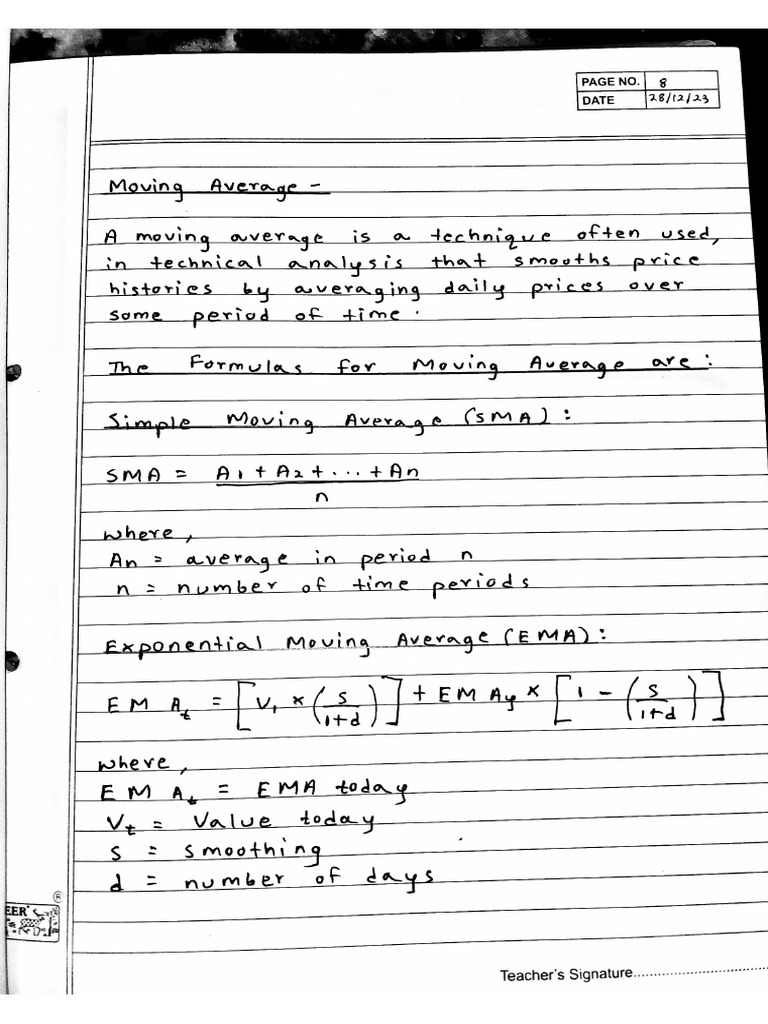 PAGE NO. 8
DATE 28/12/23
Moving Average -
A moving average is a technique often used,
in technical analysis that smooths price
histories by averaging daily prices over
some period of time.
The Formulas for Moving Average are:
Simple Moving Average (SMA):
SMA = A1 + A2 + ... + An
n
where,
An = average in period n
n = number of time periods
Exponential Moving Average (EMA):
EMAt = [V1 × (s/1+d)] + EMAy × [1 - (s/1+d)]
where,
EMAt = EMA today
Vt = Value today
s = smoothing
d = number of days
EER
Teacher's Signature